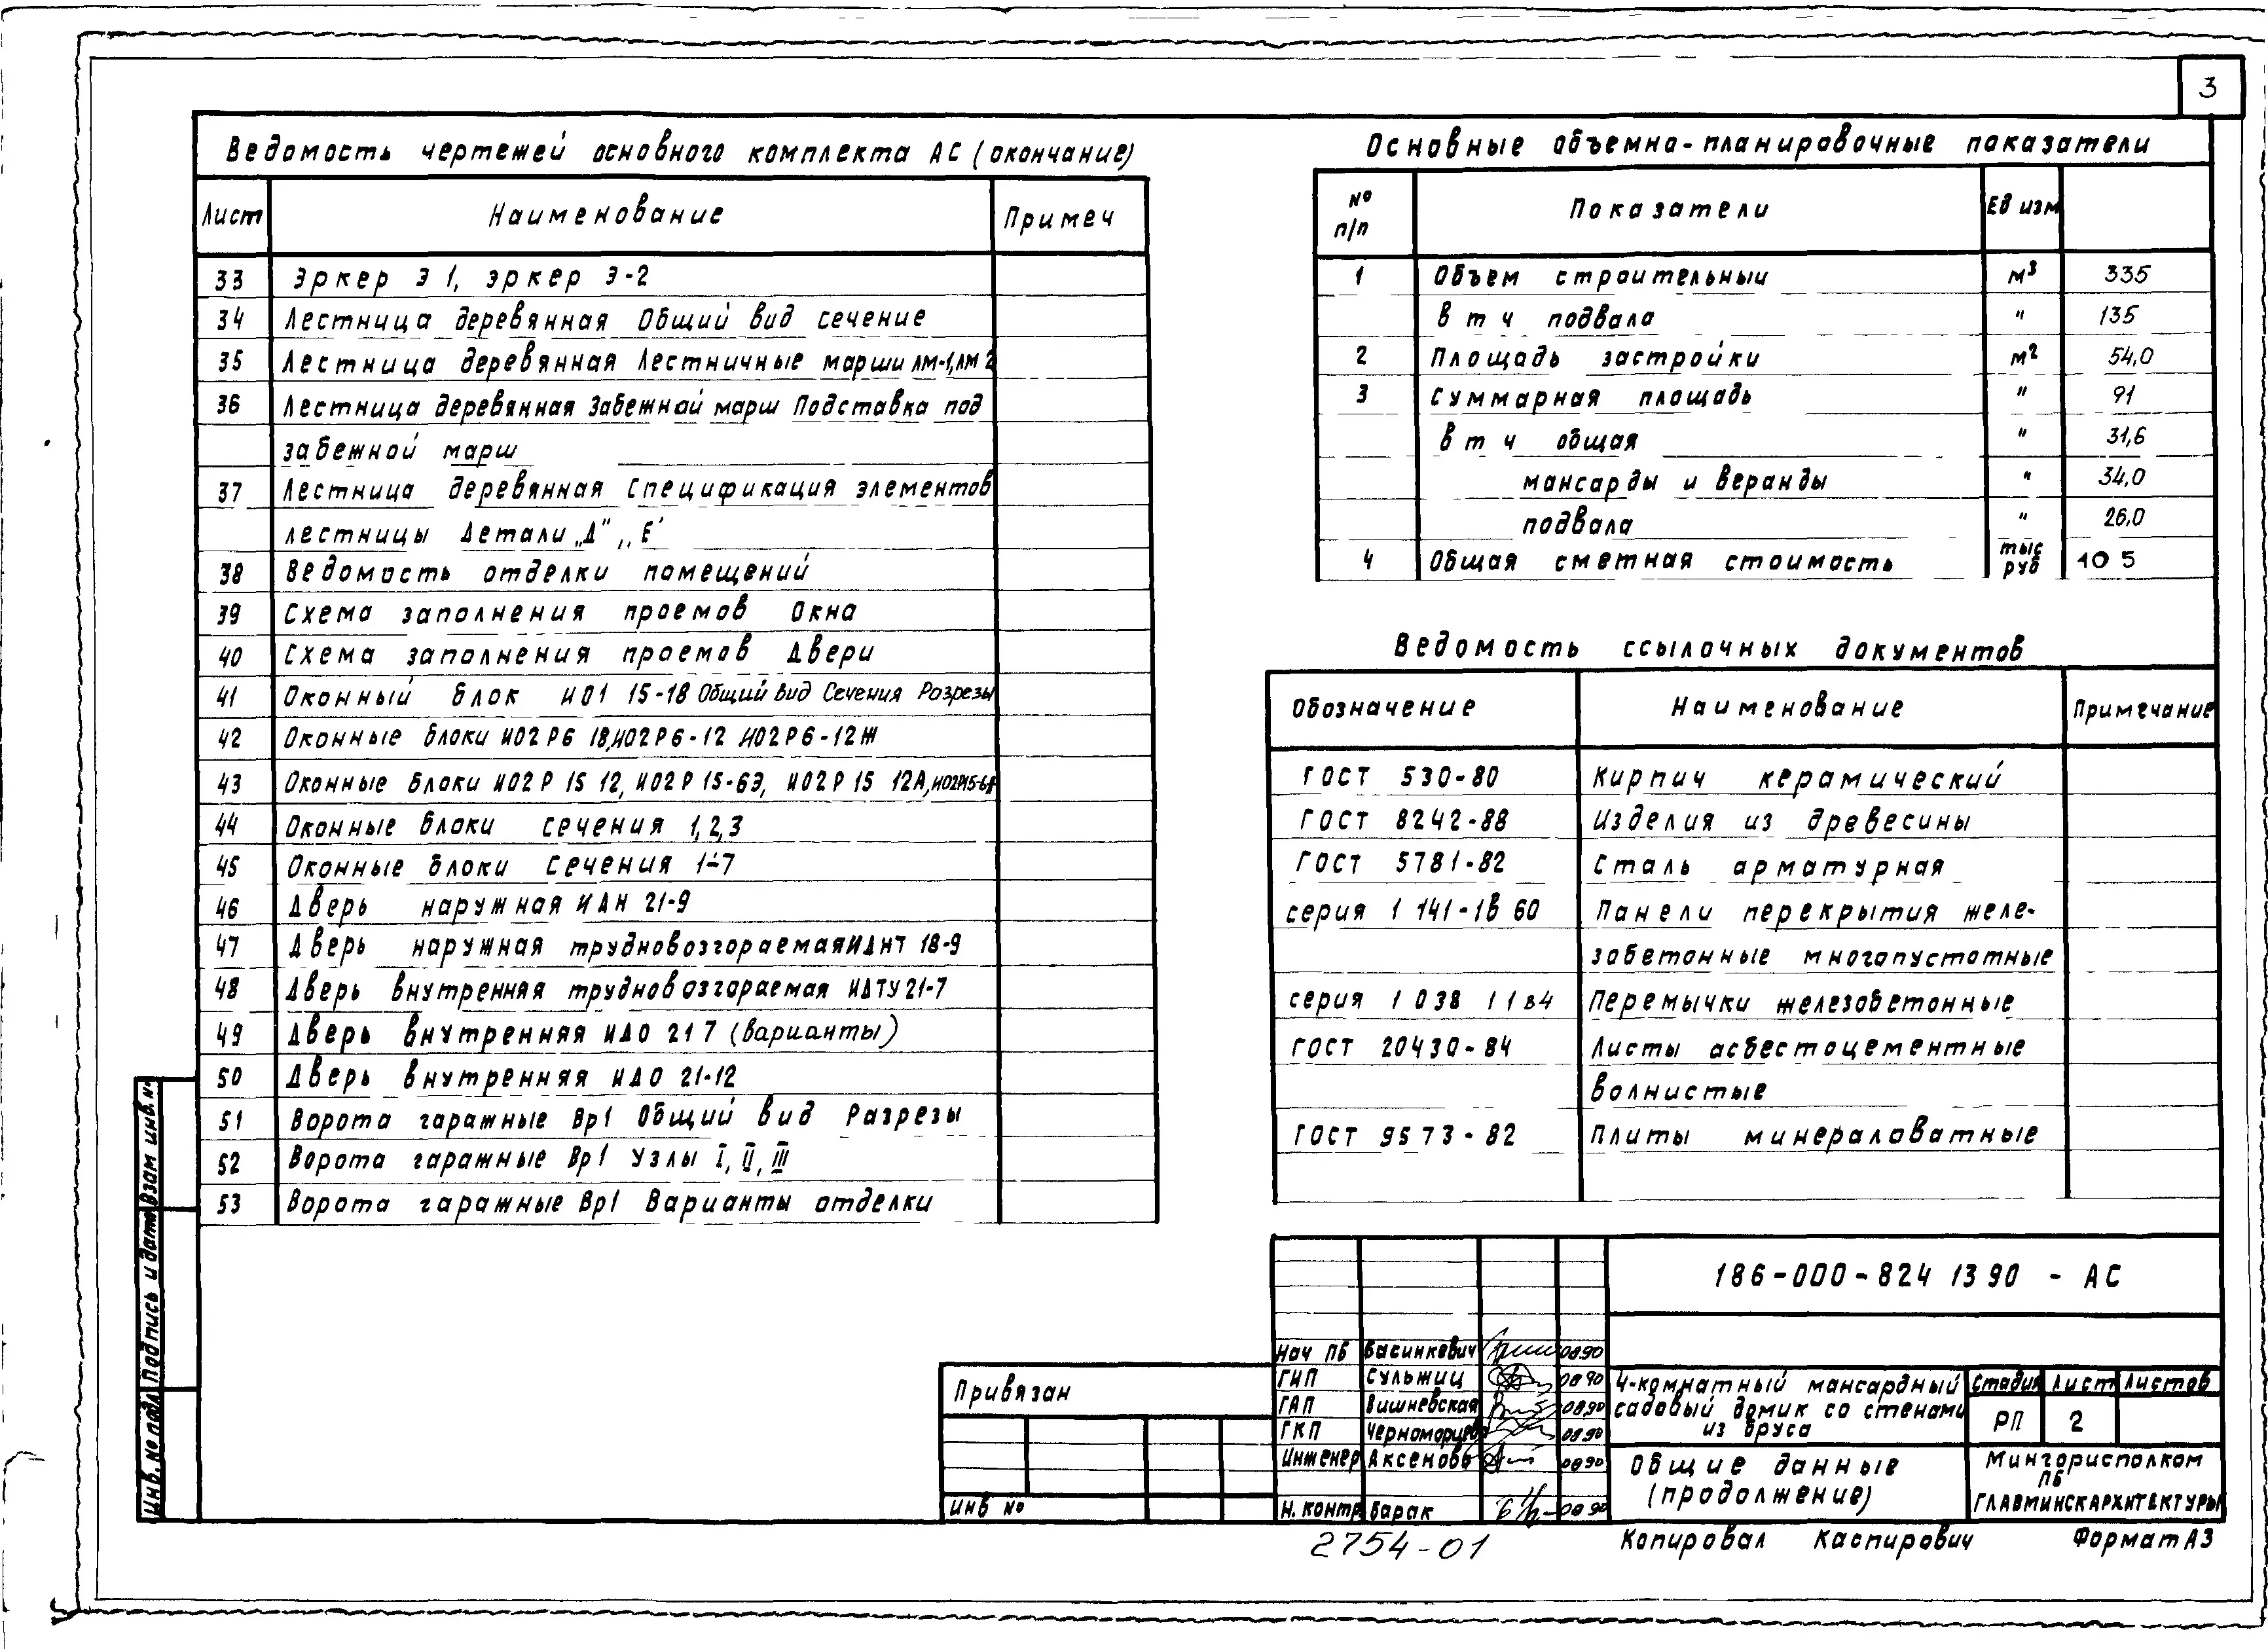 3
Ведомость чертежей основного комплекта АС (окончание)
Лист Наименование Примеч
33 Эркер Э 1, эркер Э-2
34 Лестница деревянная Общий вид сечение
35 Лестница деревянная Лестничные марши ЛМ-1, ЛМ 2
36 Лестница деревянная Забежной марш Подставка под
забежной марш
37 Лестница деревянная Спецификация элементов
лестницы Детали „Д", „Е"
38 Ведомость отделки помещений
39 Схема заполнения проемов Окна
40 Схема заполнения проемов Двери
41 Оконный блок ИО1 15-18 Общий вид Сечения Разрезы
42 Оконные блоки ИО2 Р6 18, ИО2 Р6-12 ИО2 Р6-12Ж
43 Оконные блоки ИО2 Р 15 12, ИО2 Р 15-6Э, ИО2 Р 15 12А,
44 Оконные блоки сечения 1,2,3
45 Оконные блоки сечения 1-7
46 Дверь наружная ИДН 21-9
47 Дверь наружная трудновозгораемая ИДНТ 18-9
48 Дверь внутренняя трудновозгораемая ИДТУ 21-7
49 Дверь внутренняя ИДО 21 7 (варианты)
50 Дверь внутренняя ИДО 21-12
51 Ворота гаражные Вр1 Общий вид Разрезы
52 Ворота гаражные Вр1 Узлы I, II, III
53 Ворота гаражные Вр1 Варианты отделки
Основные объемно-планировочные показатели
№ п/п Показатели Ед изм
1 Объем строительный м³ 335
в т ч подвала " 135
2 Площадь застройки м² 54,0
3 Суммарная площадь " 91
в т ч общая " 31,6
мансарды и веранды " 34,0
подвала " 26,0
4 Общая сметная стоимость тыс руб 10 5
Ведомость ссылочных документов
Обозначение Наименование Примечание
ГОСТ 530-80 Кирпич керамический
ГОСТ 8242-88 Изделия из древесины
ГОСТ 5781-82 Сталь арматурная
серия 1 141-1в 60 Панели перекрытия желе-
зобетонные многопустотные
серия 1 038 1 1 в4 Перемычки железобетонные
ГОСТ 20430-84 Листы асбестоцементные
волнистые
ГОСТ 9573-82 Плиты минераловатные
Инв. № подл Подпись и дата Взам инв. №
Привязан
Инв №
186-000-824 13 90 - АС
Нач ПБ Басинкевич 0890
ГИП Сульжиц 0890
ГАП Вишневская 08.90
ГКП Черноморцева 08.90
Инженер Аксенова 0890
Н. контр Барак 0890
4-комнатный мансардный
садовый домик со стенами
из бруса
Стадия Лист Листов
РП 2
Общие данные
(продолжение)
Мингорисполком
ПБ
ГЛАВМИНСКАРХИТЕКТУРЫ
2754-01
Копировал Каспирович Формат А3